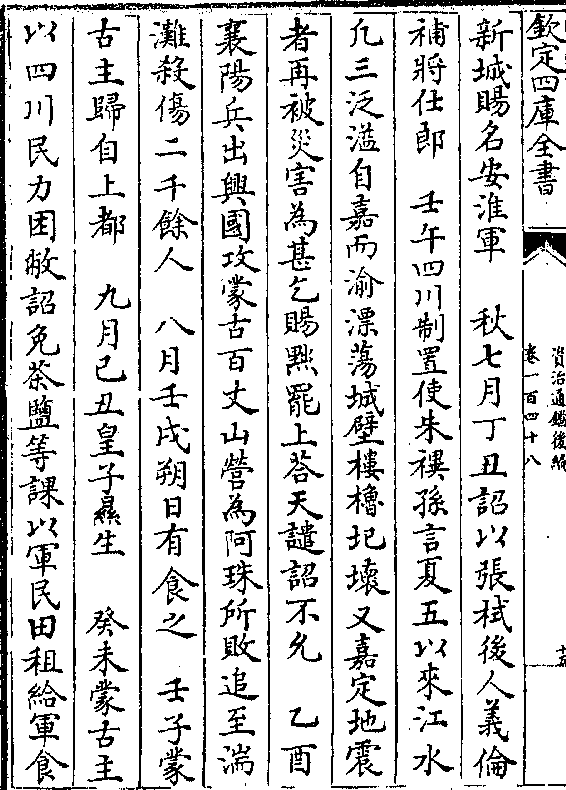 欽定四庫全書
資治通鑑後編
卷一百四十八
新城賜名安淮軍　秋七月丁丑詔以張栻後人義倫
補將仕郎　壬午四川制置使朱禩孫言夏五以來江水
凡三泛溢自嘉而渝漂蕩城壁樓櫓圮壞又嘉定地震
者再被災害為甚乞賜黜罷上荅天譴詔不允　乙酉
襄陽兵出興國攻蒙古百丈山營為阿珠所敗追至湍
灘殺傷二千餘人　八月壬戌朔日有食之　壬子蒙
古主歸自上都　九月己丑皇子㬎生　癸未蒙古主
以四川民力困敝詔免茶鹽等課以軍民田租給軍食